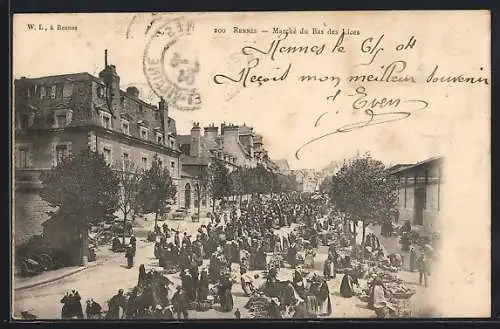 W. L., à Rennes
200 RENNES — Marché du Bas des Lices
Rennes le 04
Reçois mon meilleur souvenir